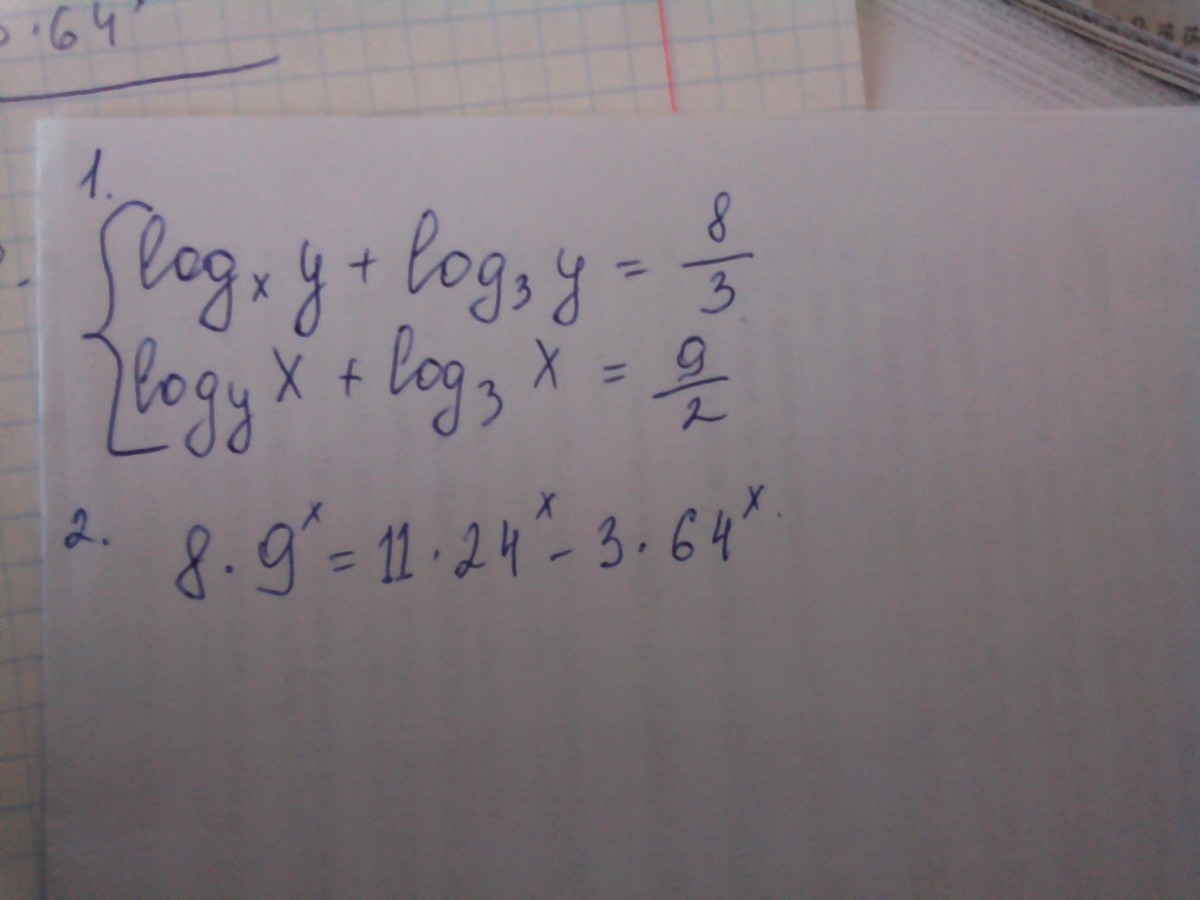 ·64
1.
log_x y + log_3 y = 8/3
log_y x + log_3 x = 9/2
2. 8·9^x = 11·24^x - 3·64^x.